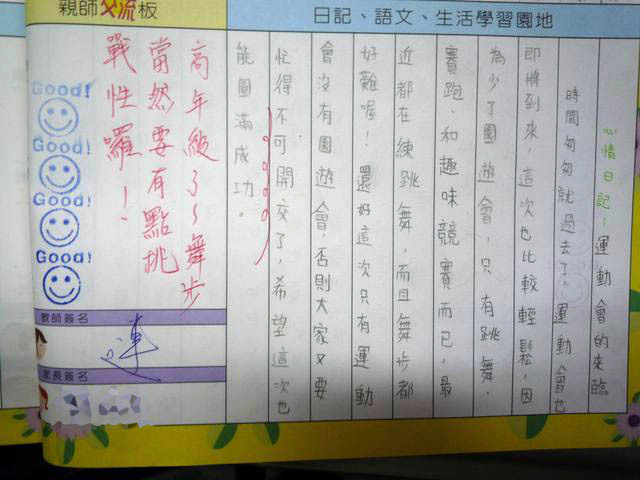 日記、語文、生活學習園地
心情日記！運動會的來臨
時間匆匆就過去了，運動會也
即將到來，這次也比較輕鬆，因
為少了園遊會，只有跳舞、
賽跑、和趣味競賽而已，最
近都在練跳舞，而且舞步都
好難喔！還好這次只有運動
會沒有園遊會，否則大家又要
忙得不可開交了，希望這次也
能圓滿成功。
親師交流板
高年級了～舞步
當然要有點挑
戰性囉！
Good!
Good!
Good!
Good!
教師簽名
家長簽名